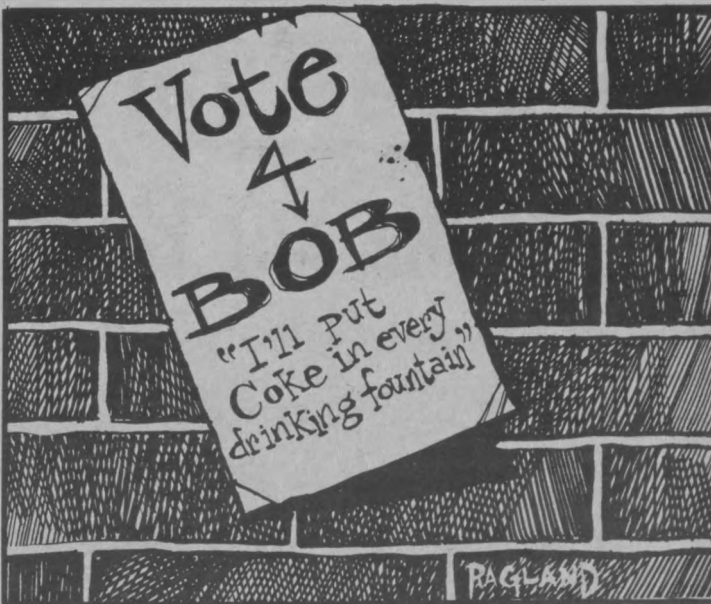 Vote
4
BOB
"I'll put
Coke in every
drinking fountain"
RAGLAND